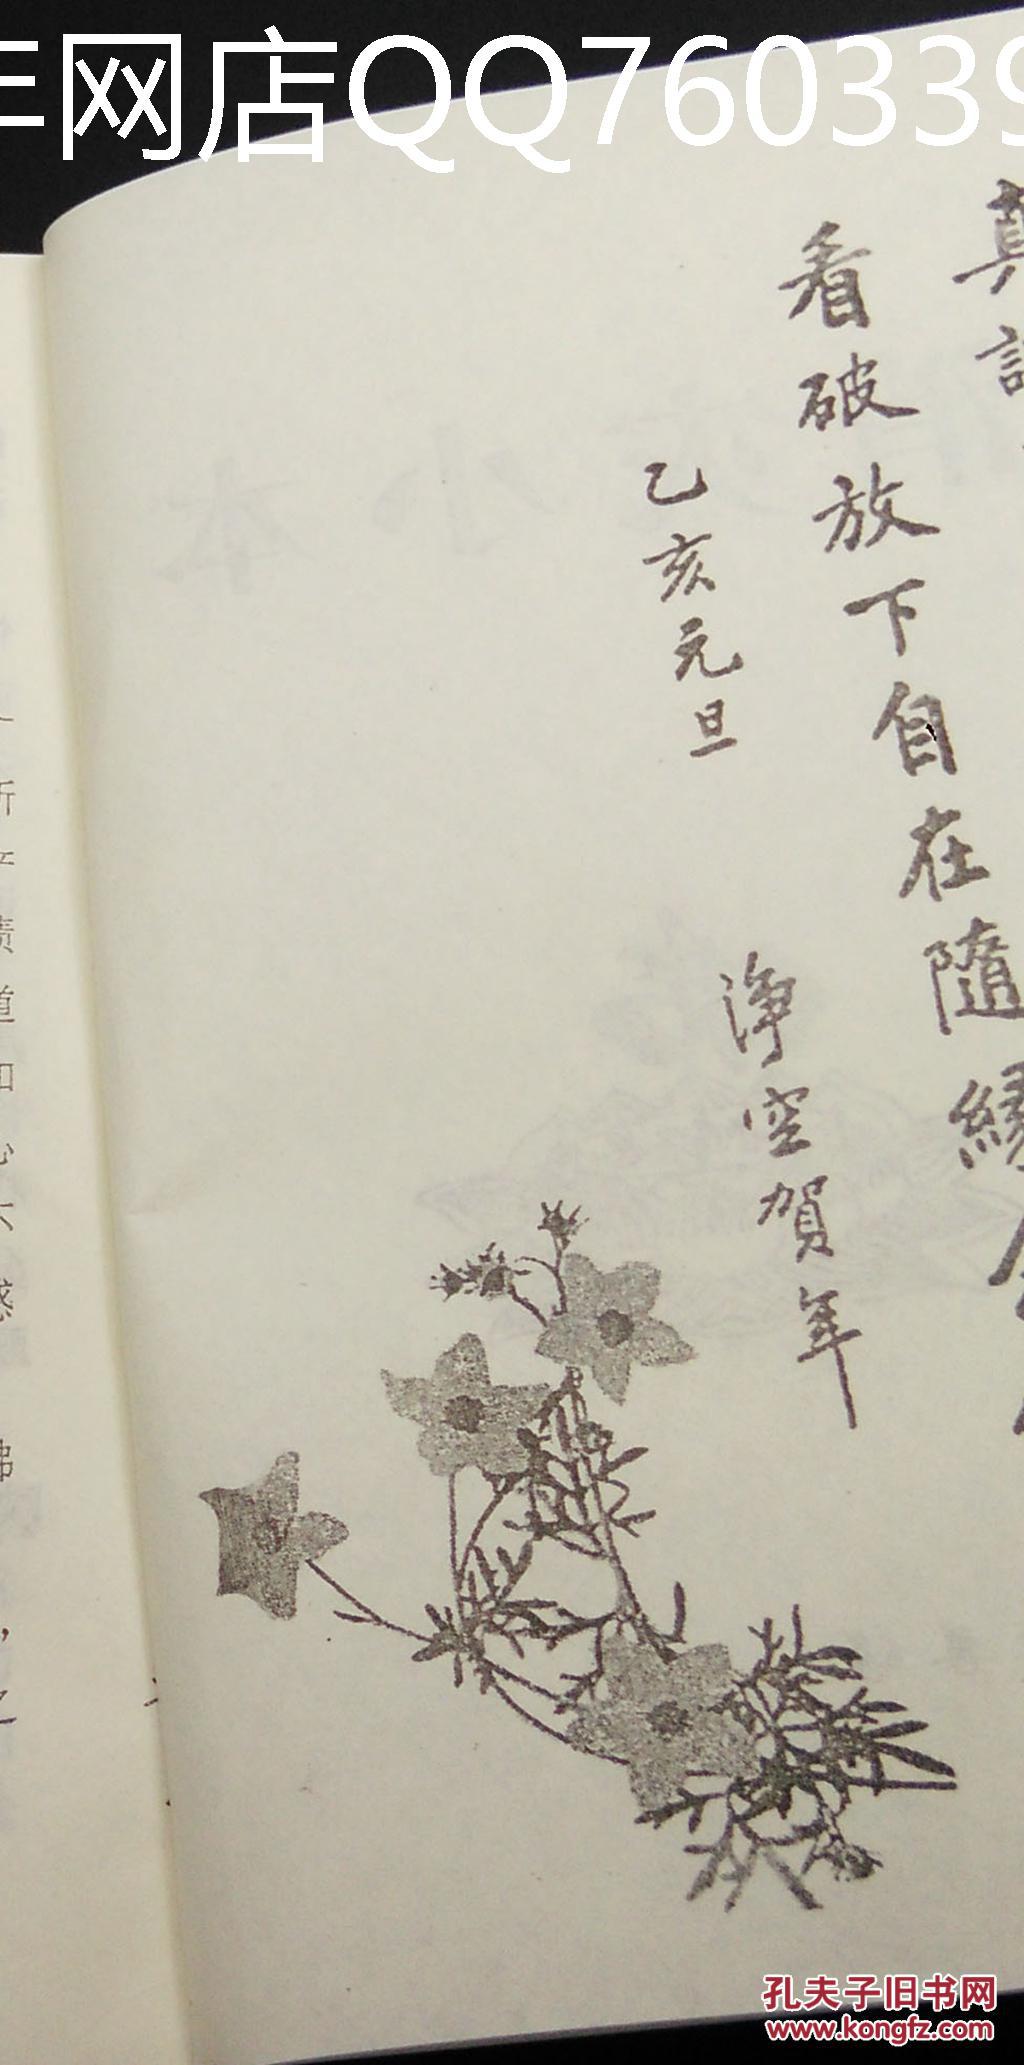 网店QQ760339
真
看破放下自在隨緣念
乙亥元旦
淨空賀年
道
心
惑
孔夫子旧书网
www.kongfz.com